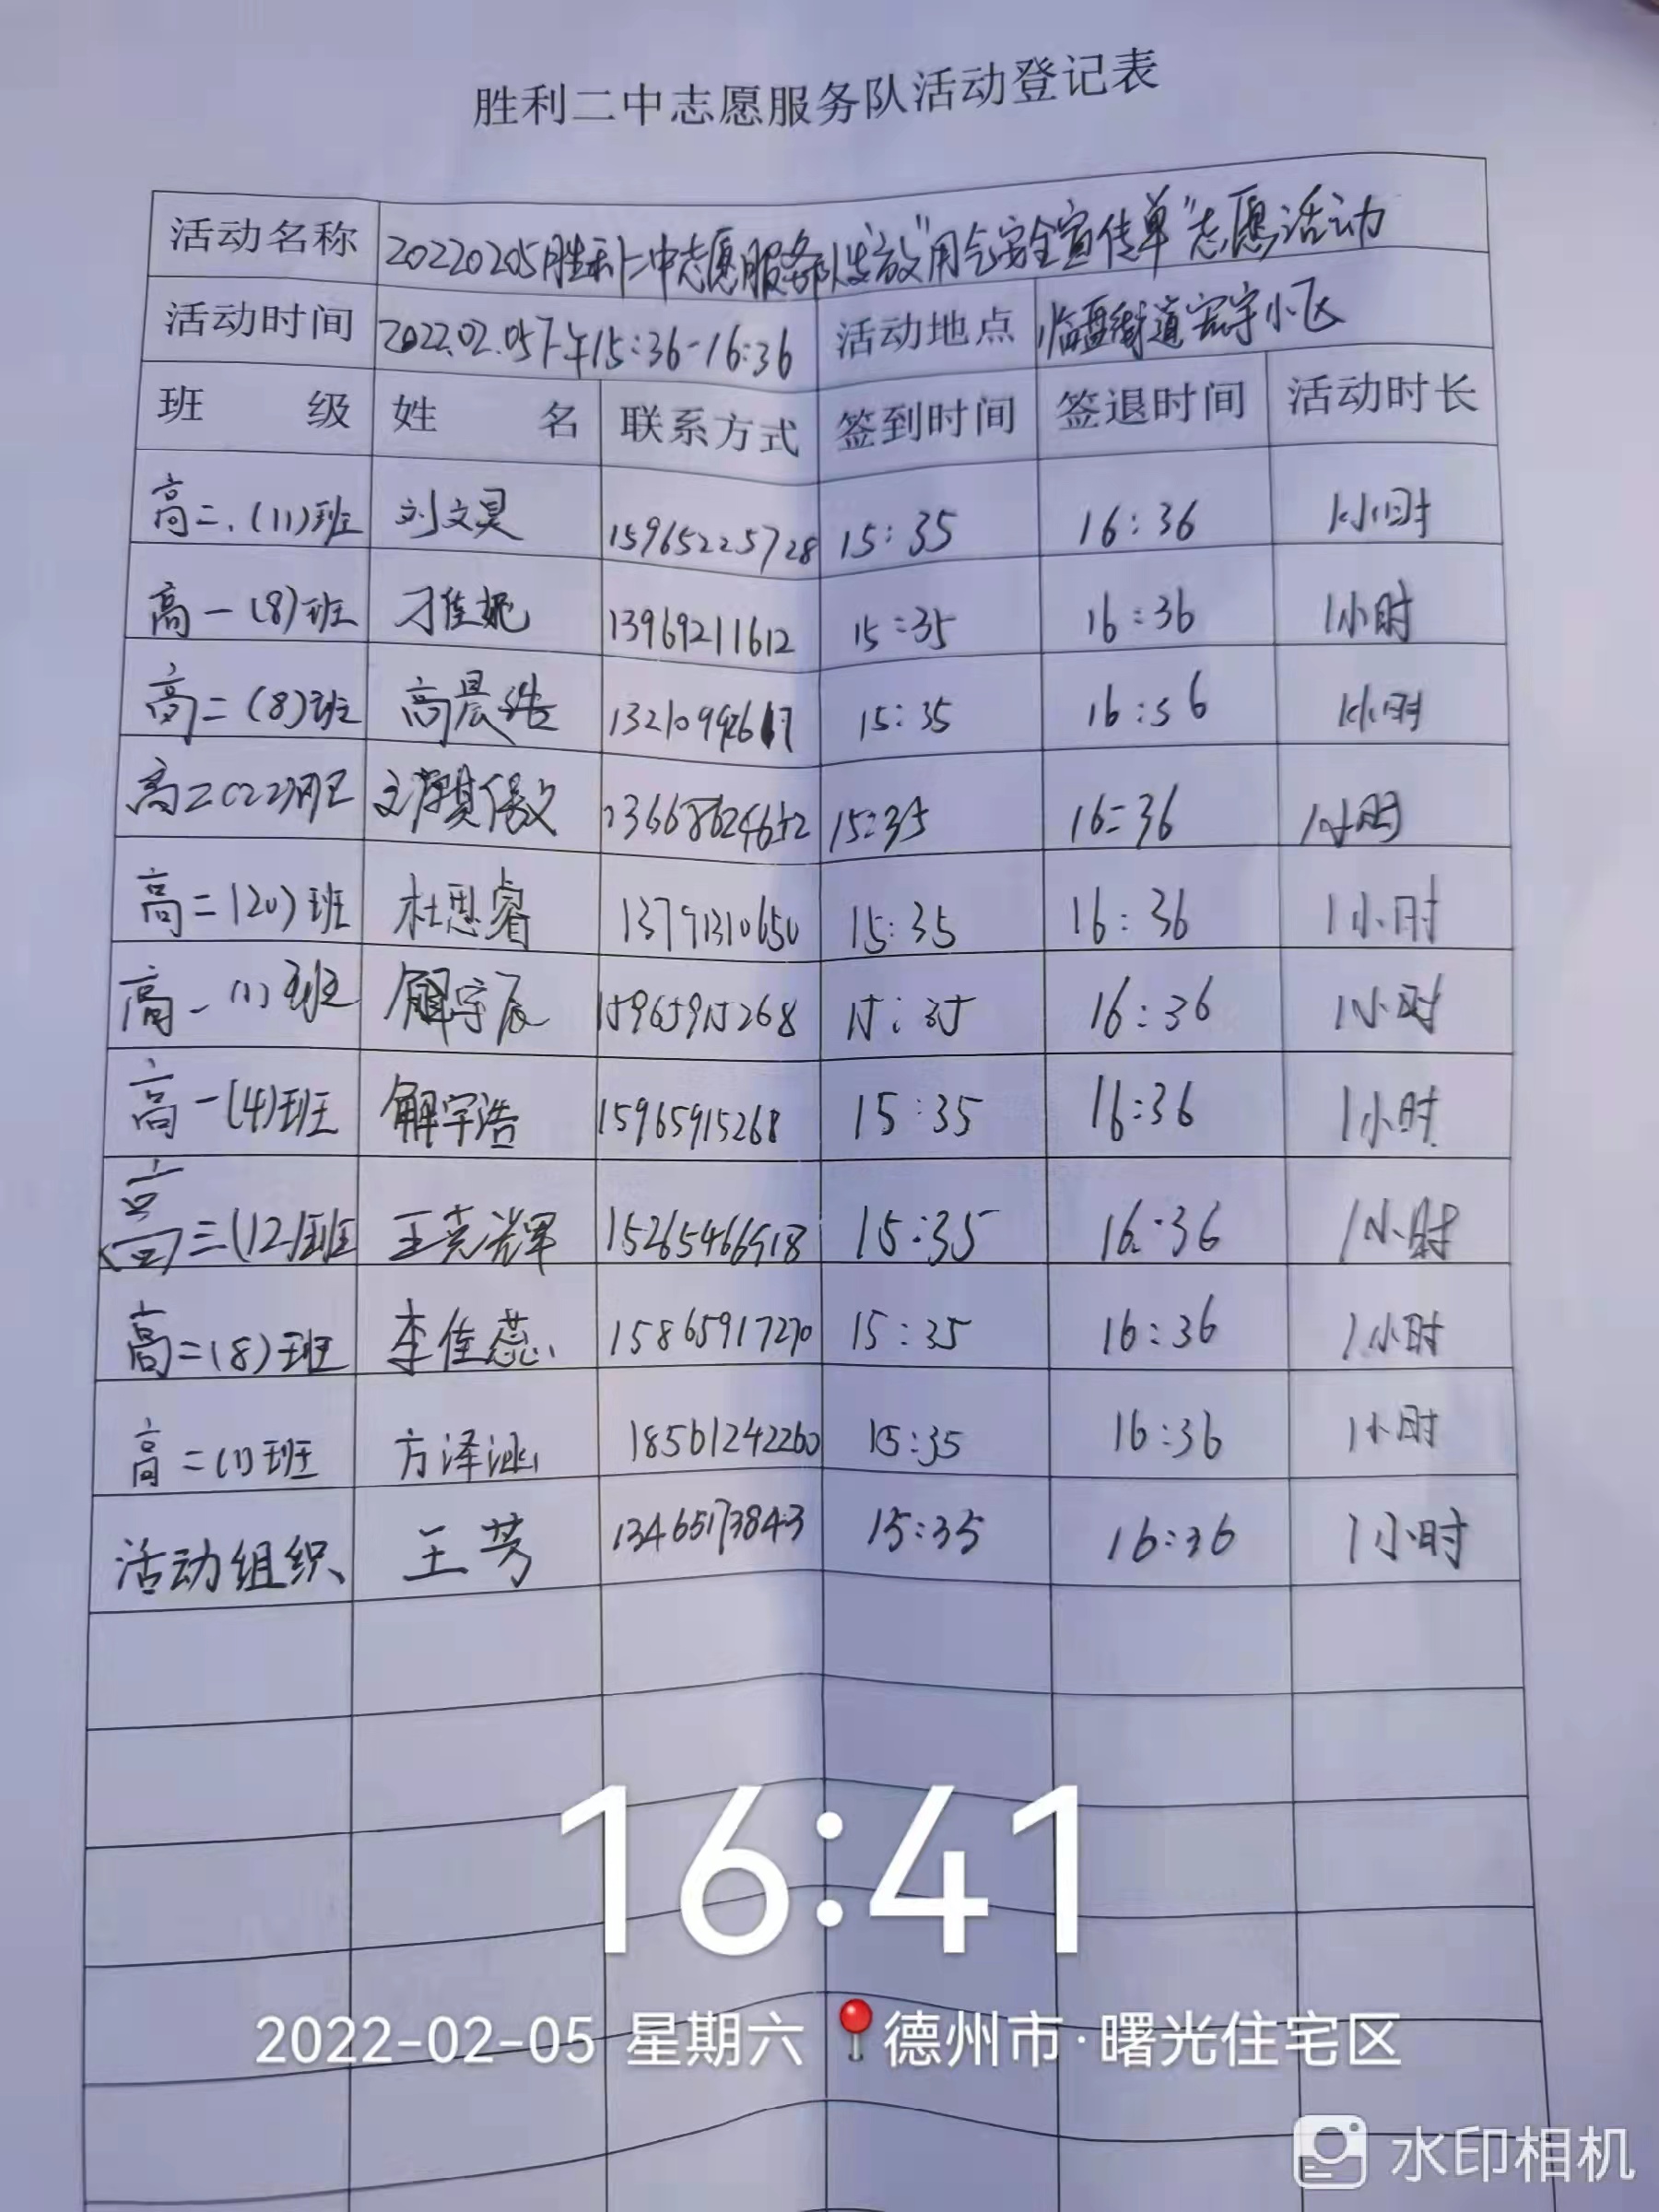 胜利二中志愿服务队活动登记表
活动名称 20220205胜利二中志愿服务队发放"用气安全宣传单"志愿活动
活动时间 2022.02.05下午15:36-16:36 活动地点 临盘街道宏宇小区
班 级 姓 名 联系方式 签到时间 签退时间 活动时长
高二.(11)班 刘文昊 15965225728 15:35 16:36 1小时
高一(8)班 刁佳妮 13969211612 15:35 16:36 1小时
高二(8)班 高晨浩 15:35 16:56 1小时
高二 15:35 16:36 1小时
高二(20)班 杜思睿 13791310650 15:35 16:36 1小时
高一(1)班 解宇辰 15965915268 15:35 16:36 1小时
高一(4)班 解宇浩 15965915268 15:35 16:36 1小时
高三(12)班 15265466918 15:35 16:36 1小时
高二(8)班 李佳蕊 15865917270 15:35 16:36 1小时
高二(1)班 方泽涵 18561242260 15:35 16:36 1小时
活动组织 王芳 13465173843 15:35 16:36 1小时
16:41
2022-02-05 星期六 德州市·曙光住宅区
水印相机